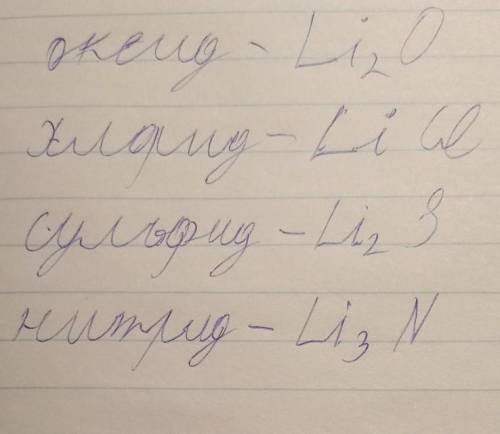 оксид - Li₂O
хлорид - LiCl
сульфид - Li₂S
нитрид - Li₃N